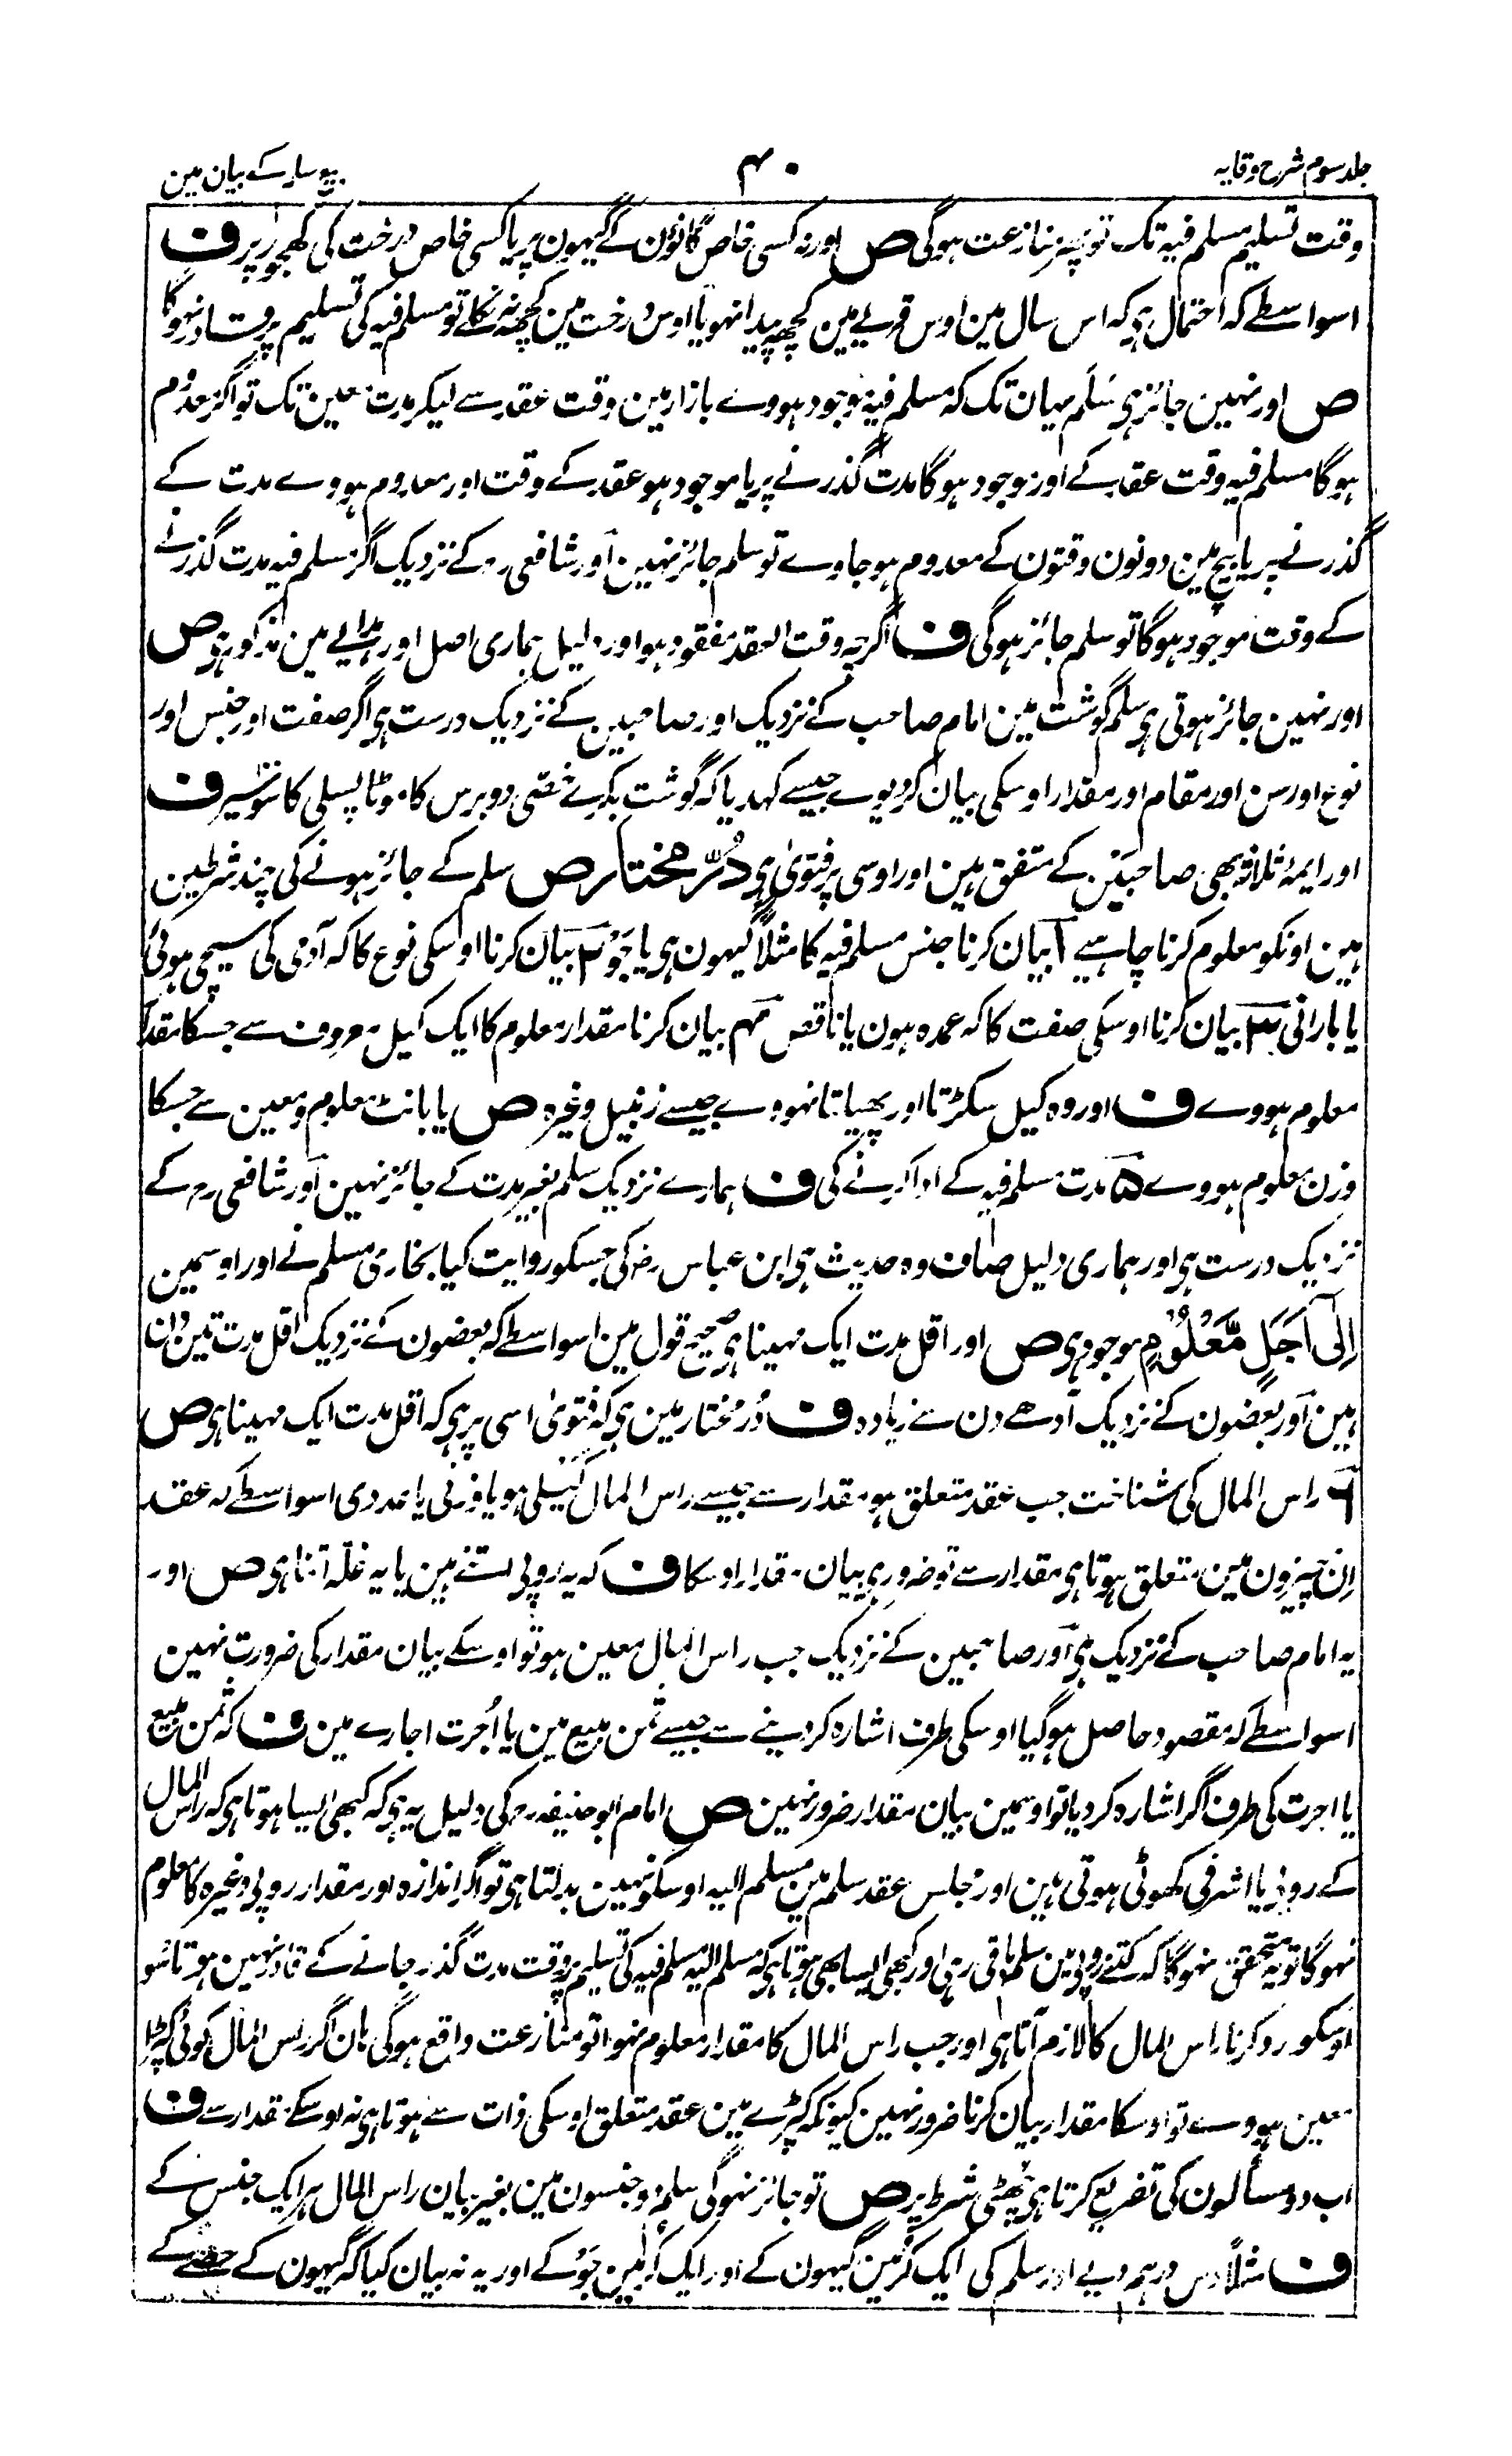 جلد سوم شرح وقایہ
۴۰
بیع سلم کے بیان مین
وقت تسلیم مسلم فیہ تک تو پھر منازعت ہوگی ص اور نہ کسی خاص گانوٗن کے گیہون پر یا کسی خاص درخت کی کھجور پر ف
اسواسطے کہ احتمال ہی کہ اس سال مین اوس قریے مین کچھ پیدا نہو یا اوس درخت مین کچھ نہ نکلے تو مسلم فیہ کی تسلیم پر قادر نہوگا
ص اور نہین جائز ہی سَلَم یہان تک کہ مسلم فیہ موجود ہووے بازار مین وقت عقد سے لیکر مدت معین تک تو اگر معدُوم
ہوگا مسلم فیہ وقت عقد کے اور موجود ہوگا مدت گذرنے پر یا موجود ہو عقد کے وقت اور معدوم ہووے مدت کے
گذرنے پر یا بیچ مین دونون وقتون کے معدوم ہو جاوے تو سلم جائز نہین اور شافعی رہ کے نزدیک اگر مسلم فیہ مدت گذرنے
کے وقت موجود ہوگا تو سلم جائز ہوگی ف اگرچہ وقت العقد مفقود ہو اور دلیل ہماری اصل اور ہدایے مین مذکور ہی ص
اور نہین جائز ہوتی ہی سلم گوشت مین امام صاحب کے نزدیک اور صاحبین کے نزدیک درست ہی اگر صفت اور جنس اور
نوع اور سن اور مقام اور مقدار اوسکی بیان کر دیوے جیسے کہدیا کہ گوشت بکرے خصّی دو برس کا موٹا پسلی کا سَو سیر ف
اور ایمۂ ثلاثہ بھی صاحبَین کے متفق ہین اور اوسی پر فتویٰ ہی دُرِّ مختار ص سلم کے جائز ہونے کی چند شرطین
ہین اونکو معلوم کرنا چاہیے ۱ بیان کرنا جنس مسلم فیہ کا مثلاً گیہون ہی یا جَو ۲ بیان کرنا اوسکی نوع کا کہ آدمی کی سیچی ہوئی
یا بارانی ۳ بیان کرنا اوسکی صفت کا کہ عمدہ ہون یا ناقص ۴ بیان کرنا مقدار معلوم کا ایک کیل معروف سے جسکا مقدار
معلوم ہووے ف اور وہ کیل سکڑتا اور پھیلتا نہووے جیسے زنبیل وغیرہ ص یا بانٹ معلوم و معین سے جسکا
وزن معلوم ہووے ۵ مدت مسلم فیہ کے ادا کرنے کی ف ہمارے نزدیک سلم بغیر مدت کے جائز نہین اور شافعی رہ کے
نزدیک درست ہی اور ہماری دلیل صاف وہ حدیث ہی ابن عباس رض کی جسکو روایت کیا بخاری مسلم نے اور اوسمین
اِلٰی اَجَلٍ مَّعْلُوْمٍ موجود ہی ص اور اقل مدت ایک مہینا ہی صحیح قول مین اسواسطے کہ بعضون کے نزدیک اقل مدت تین دن
ہین اور بعضون کے نزدیک آدھے دن سے زیادہ ف دُر مختار مین ہی کہ فتویٰ اسی پر ہی کہ اقل مدت ایک مہینا ہی ص
۶ راس المال کی شناخت جب عقد متعلق ہو مقدار سے جیسے راس المال کیلی ہو یا وزنی یا عددی اسواسطے کہ عقد
اِن چیزون مین متعلق ہوتا ہی مقدار سے تو ضرور ہی بیان مقدار اوسکا ف کہ یہ روپی اتنے ہین یا یہ غلّہ اتنا ہی ص اور
یہ امام صاحب کے نزدیک ہی اور صاحبین کے نزدیک جب راس المال معین ہو تو اوسکے بیان مقدار کی ضرورت نہین
اسواسطے کہ مقصود حاصل ہو گیا اوسکی طرف اشارہ کر دینے سے جیسے ثمن مبیع مین یا اُجرت اجارے مین ف کہ ثمن مبیع
یا اجرت کی طرف اگر اشارہ کر دیا تو اوسمین بیان مقدار ضرور نہین ص امام ابو حنیفہ رہ کی دلیل یہ ہی کہ کبھی ایسا ہوتا ہی کہ راس المال
کے روپی یا اشرفی کھوٹی ہوتی ہین اور مجلس عقد سلم مین مسلم الیہ اوسکو نہین بدلتا ہی تو اگر اندازہ اور مقدار روپی وغیرہ کا معلوم
نہوگا تو یہ متحقق نہوگا کہ کتنے روپی مین سلم باقی رہی اور کبھی ایسا بھی ہوتا ہی کہ مسلم الیہ مسلم فیہ کی تسلیم پر وقت مدت گذر جانے کے قادر نہین ہوتا سو
اوسکو رد کرنا راس المال کا لازم آتا ہی اور جب راس المال کا مقدار معلوم نہوا تو منازعت واقع ہوگی ہان اگر راس المال کوئی کپڑا
معین ہووے تو اوسکا مقدار بیان کرنا ضرور نہین کیونکہ کپڑے مین عقد متعلق اوسکی ذات سے ہوتا ہی نہ اوسکے مقدار سے ف
اب دو مسألون کی تفریع کرتا ہی چھٹی شرط پر ص تو جائز نہوگی سلم دو جنسون مین بغیر بیان راس المال ہر ایک جنس کے
ف مثلاً دس درہم دیے اور سلم کی ایک کُر مین گیہون کے اور ایک کُر مین جَو کے اور یہ نہ بیان کیا کہ گیہون کے حصے کے